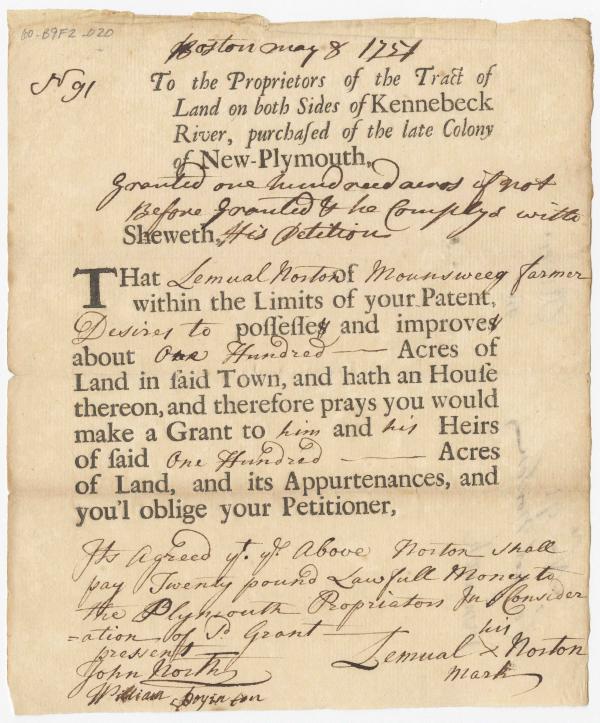 60-B9F2-020
Boston may 8 1751
No 91
To the Proprietors of the Tract of
Land on both Sides of Kennebeck
River, purchaſed of the late Colony
of New-Plymouth,
Granted one hundreed acros if not
Before Granted & he Complys with
Sheweth, His Petition
THat Lemual Norton of Mounsweeg farmer
within the Limits of your Patent,
Desires to poſſeſſes and improves
about One Hundred Acres of
Land in ſaid Town, and hath an Houſe
thereon, and therefore prays you would
make a Grant to him and his Heirs
of ſaid One Hundred Acres
of Land, and its Appurtenances, and
you'l oblige your Petitioner,
Its Agreed yt. ye. Above Norton shall
pay Twenty pound Lawfull Money to
the Plymouth Propriators In Consider
=ation of Sd Grant
pressent his
Lemual × Norton
John North mark
William